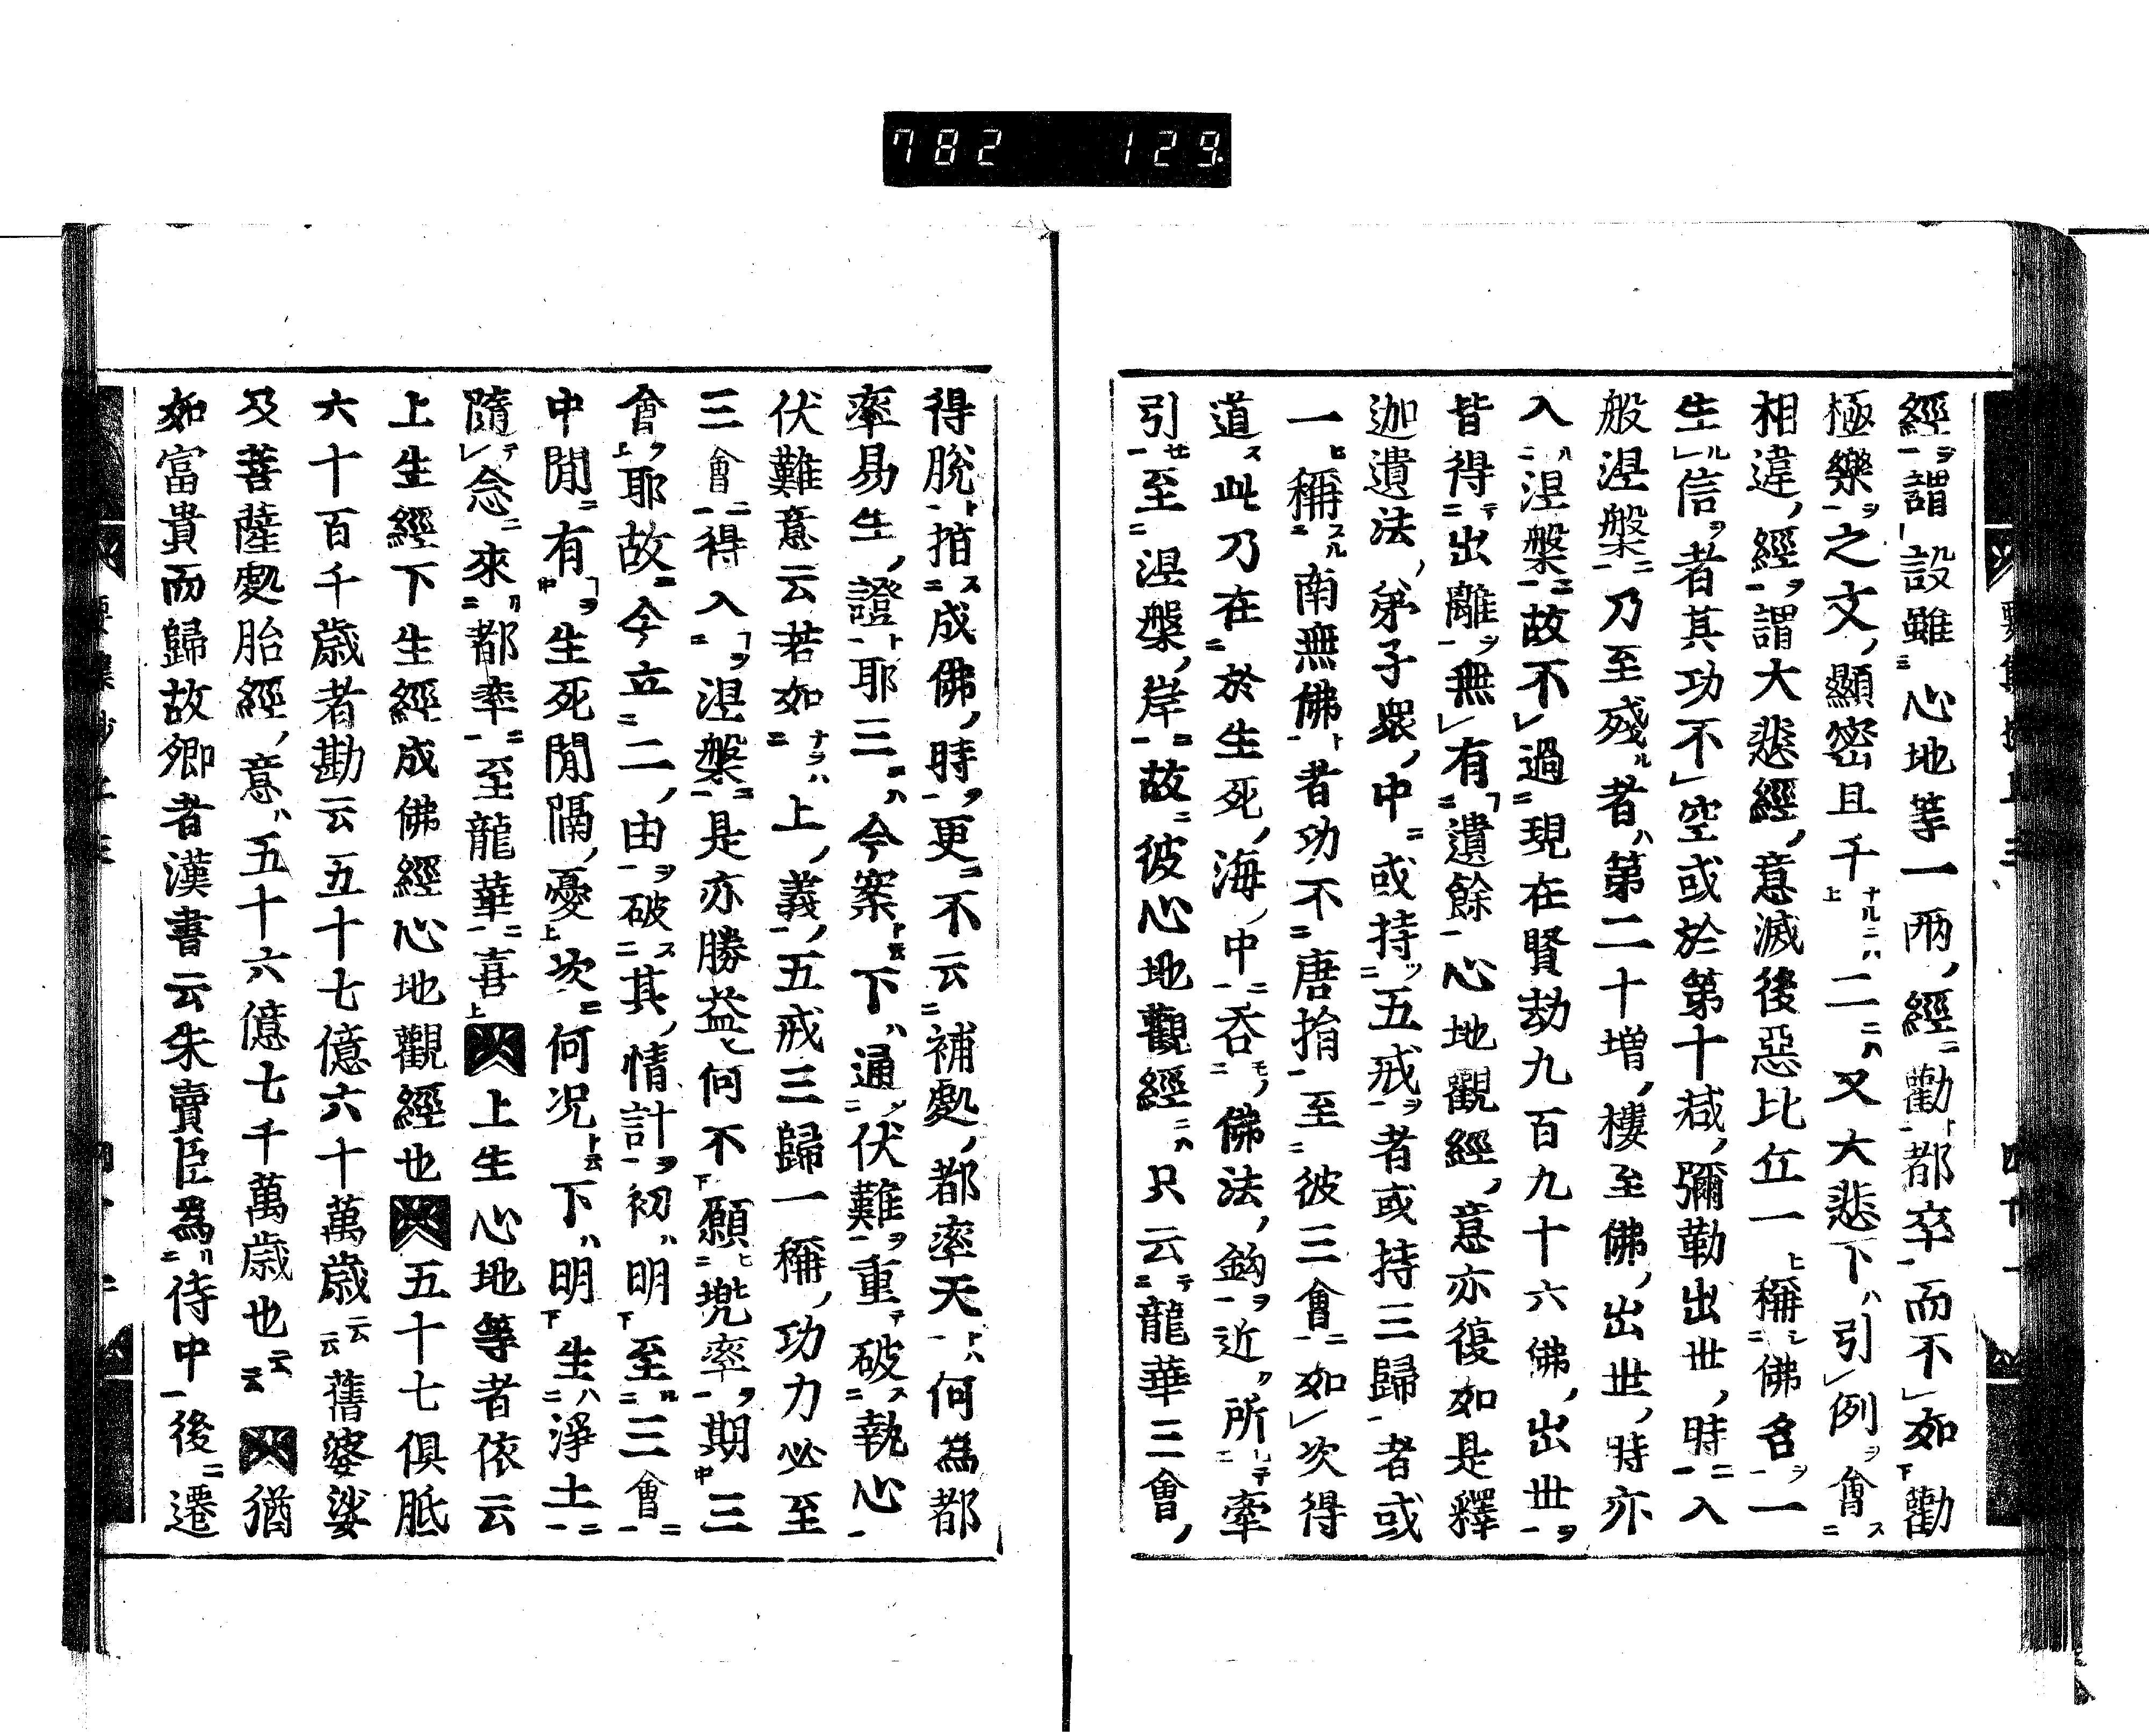 782 129
經謂設雖心地等一兩經勸都率而不如勸
極樂之文顯密且千二又大悲下引例會
相違經謂大悲經意滅後惡比丘一稱佛名一
生信者其功不空或於第十減彌勒出世時入
般涅槃乃至殘者第二十增樓至佛出世時亦
入涅槃故不過現在賢劫九百九十六佛出世
皆得出離無有遺餘心地觀經意亦復如是釋
迦遺法弟子衆中或持五戒者或持三歸者或
一稱南無佛者功不唐捐至彼三會如次得
道此乃在於生死海中吞佛法鈎近所牽
引至涅槃岸故彼心地觀經只云龍華三會
得脫指成佛時更不云補處都率天何為都
率易生證耶三今案下通伏難重破執心
伏難意云若如上義五戒三歸一稱功力必至
三會得入涅槃是亦勝益何不願兜率期三
會耶故今立二由破其情計初明至三會
中間有生死間隔憂次何況下明生淨土
隨念來都率至龍華喜上生心地等者依云
上生經下生經成佛經心地觀經也五十七俱胝
六十百千歲者勘云五十七億六十萬歲云云舊婆娑
及菩薩處胎經意五十六億七千萬歲也云云猶
如富貴而歸故鄉者漢書云朱賣臣為侍中後遷